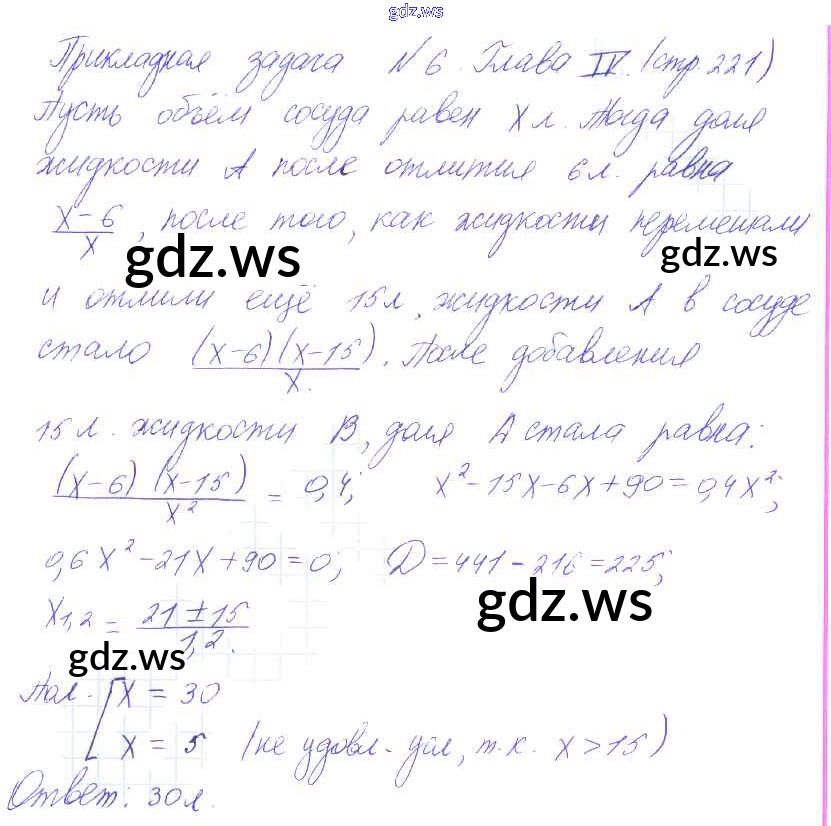 gdz.ws
Прикладная задача № 6. Глава IV. (стр. 221)
Пусть объём сосуда равен x л. Тогда доля
жидкости A после отлития 6 л. равна
(x-6)/x, после того, как жидкости перемешали
gdz.ws gdz.ws
и отлили ещё 15 л, жидкости A в сосуде
стало (x-6)(x-15)/x. После добавления
15 л. жидкости B, доля A стала равна:
(x-6)(x-15)/x² = 0,4; x²-15x-6x+90=0,4x²;
0,6x²-21x+90=0; D=441-216=225;
x1,2 = (21±15)/1,2.
gdz.ws
gdz.ws
Пол. [x = 30
x = 5 (не удовл. усл, т.к. x>15)
Ответ: 30 л.